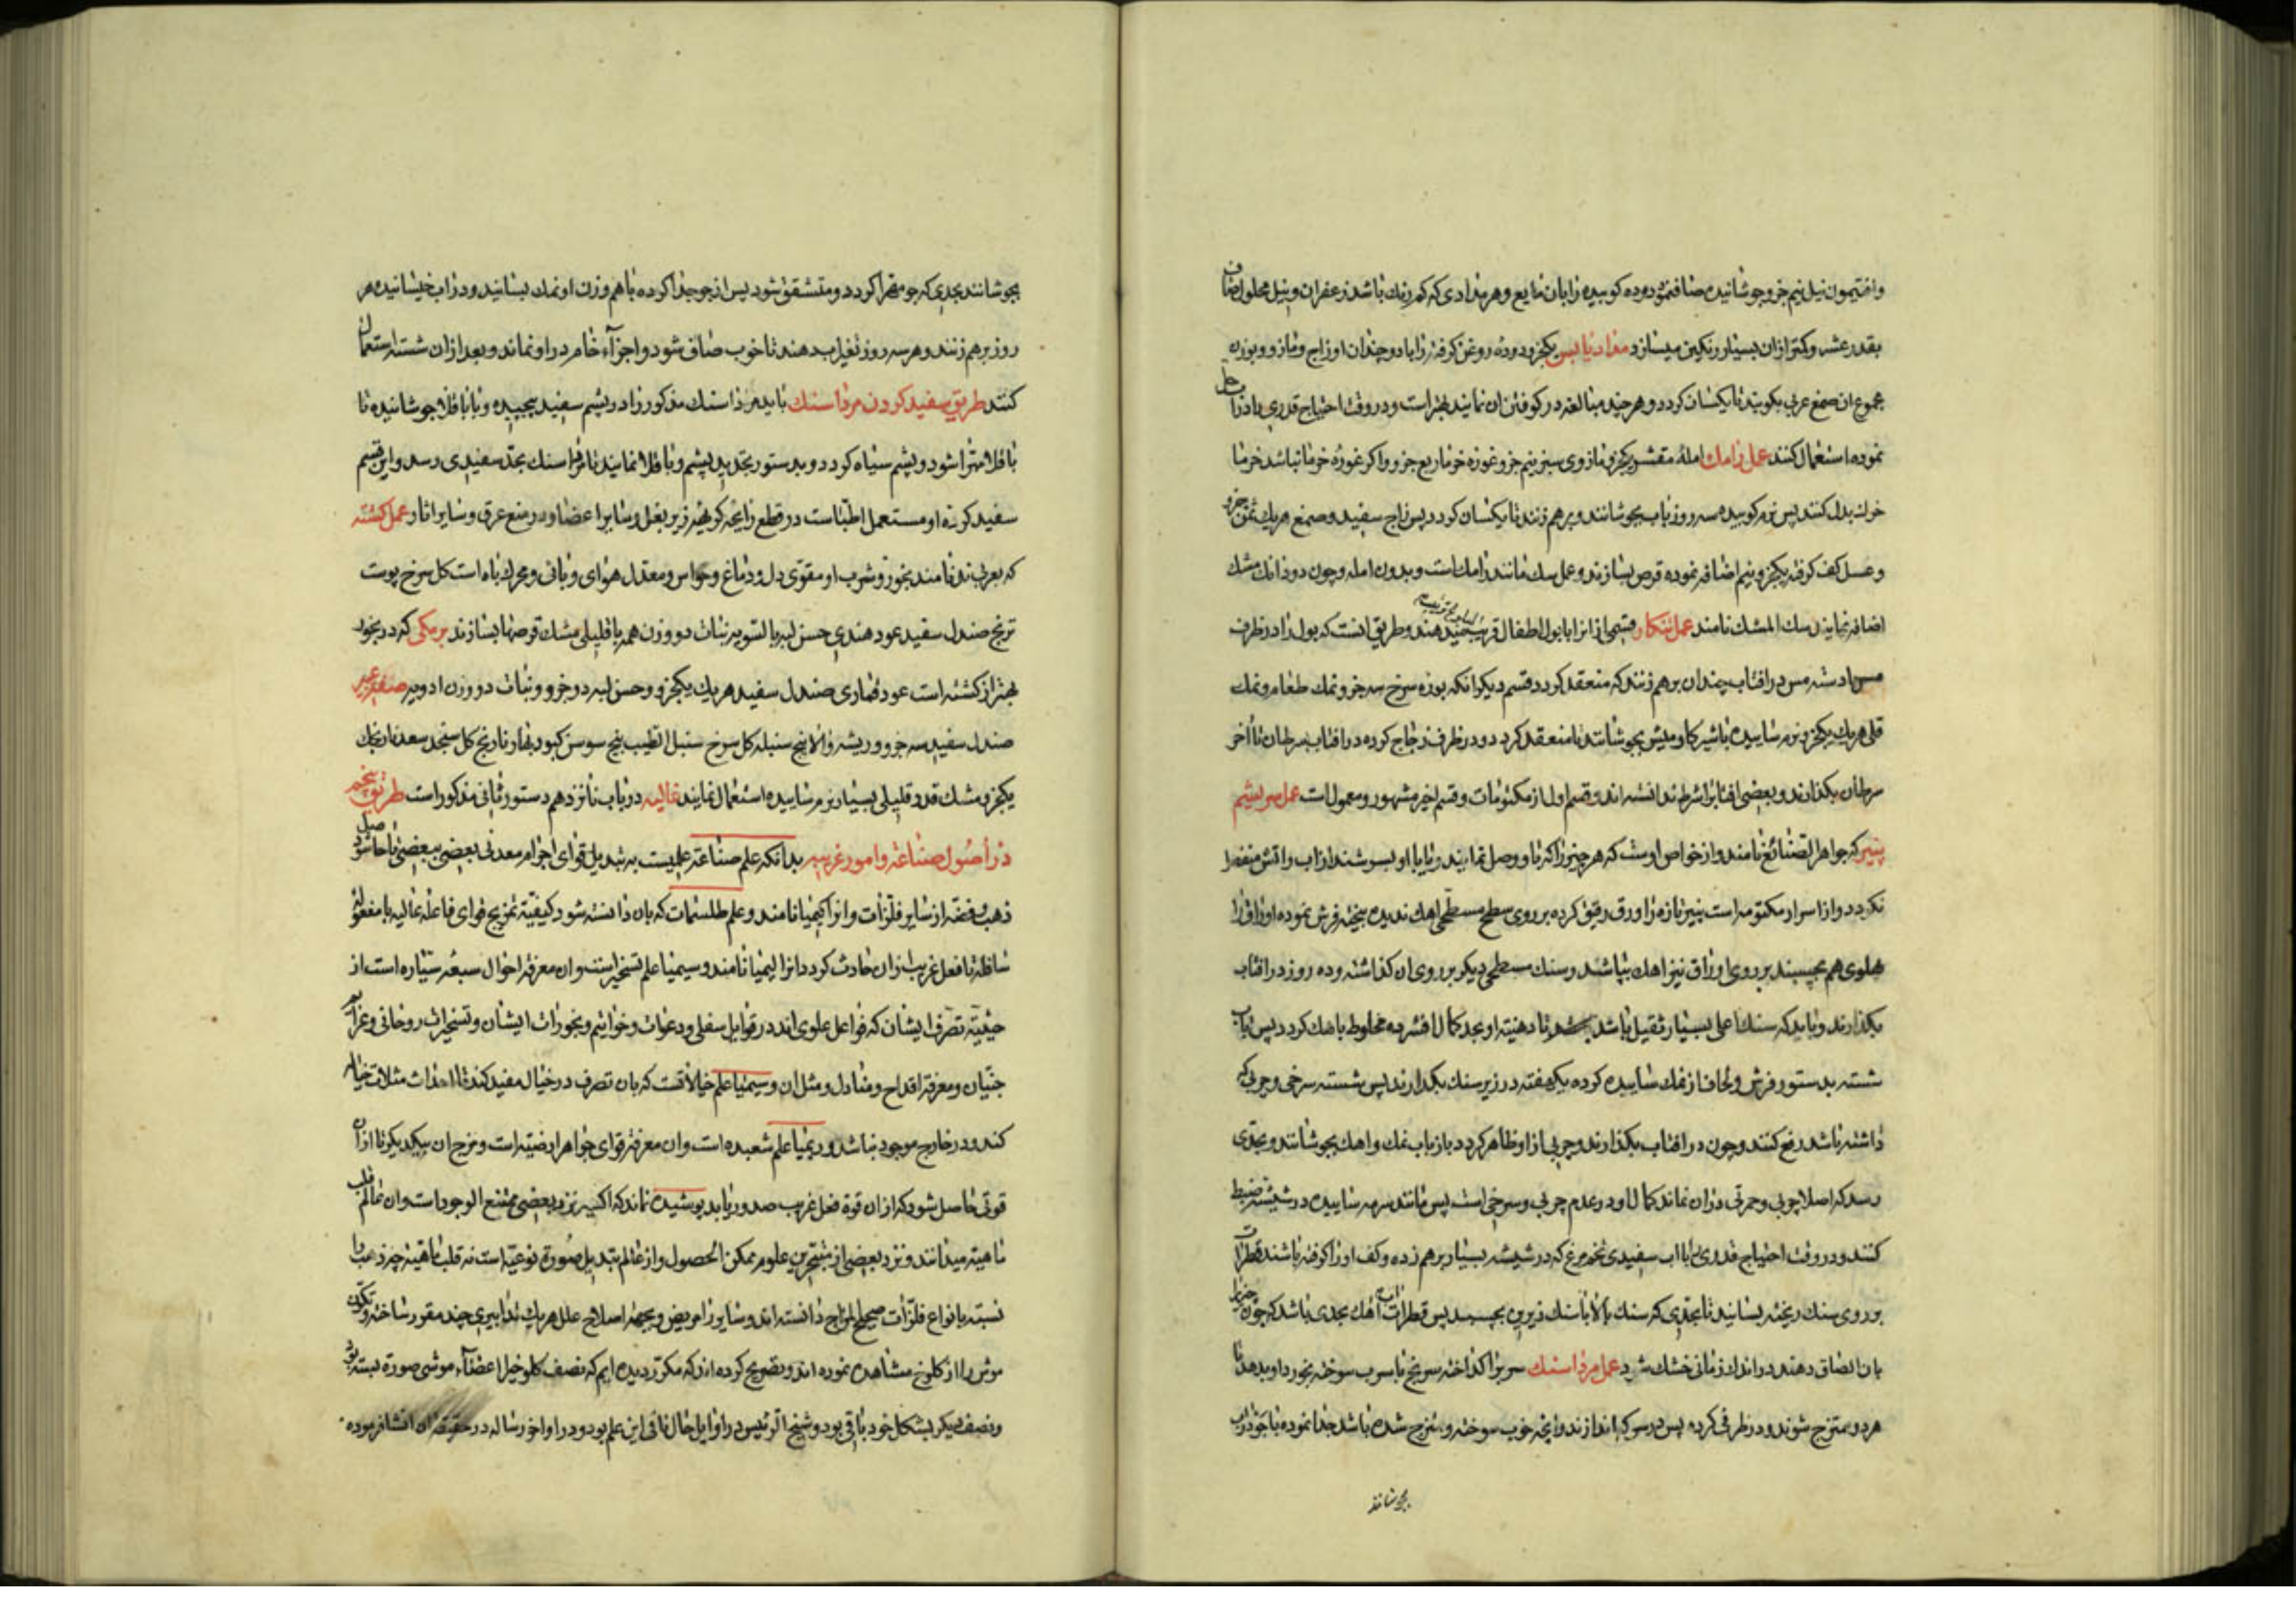 وافتیمون نیل نیم جزو جوشانیده صاف نموده دوده کوبیده را بان مایع و هر مدادی که کم رنك باشد زعفران و نیل محلول
بقدر عشر و کمتر ازان بسیار رنکین میسازد مداد یکجزو دوده روغن کرفته را با دو چندان او زاج و مازو و بوزن
مجموع ان صمغ عربی بکوبند تا یکسان کردد و هر چند مبالغه در کوفتن ان نمایند بهتر است و در وقت احتیاج قدری با
نموده استعمال کنند عمل رامك امله مقشر یکجزو مازوی سبز نیم جزو غوره خرما ربع جزو و اکر غوره خرما نباشد خرما
بدل کنند پس نرم کوبیده سه روز باب بجوشانند و برهم زنند تا یکسان کردد پس زاج سفید و صمغ هریك ثمن جزو
و عسل کف کرفته یکجزو نیم اضافه نموده قرص بسازند و عمل سك مانند رامك است و بدون امله و چون دو دانك مشك
اضافه نمایند سك المشك نامند عمل تنکار قسمی ازانرا با بول اطفال میدهند و طریق انست که بول را در ظرف
مس با دسته مس در افتاب چندان برهم زنند که منعقد کردد قسم دیکر انکه بوره سرخ سه جزو نمك طعام و نمك
قلی هریك یکجزو نرم سائیده باشیر کاومیش بجوشانند تا منعقد کردد و در ظرف زجاج کرده در افتاب سرطان تا اخر
سرطان بکذارند و بعضی افتاب را شرط ندانسته اند و قسم اول از مکتومات و قسم اخیر مشهور و معمول است عمل سریشم
پنیر که جواهر الصنائع نامند و از خواص اوست که هر چیز را که باو وصل نمایند و یا با او بپوشند از اب و اتش منفصل
نکردد و از اسرار مکتومه است پنیر تازه را ورق رقیق کرده بر روی سطح مسطحی اهك ندیده بیخته فرش نموده اوراق را
پهلوی هم بچسبند بر روی اوراق نیز اهك بپاشند و سنك مسطحی دیکر بر روی ان کذاشته و ده روز در افتاب
بکذارند و باید که سنك اعلی بسیار ثقیل باشد تا دهنیته او بحد کمال افشرده مخلوط باهك کردد پس باب
شسته بدستور فرش و لحاف از نمك سائیده کرده یکهفته در زیر سنك بکذارند پس شسته سرخی و چربی که
داشته باشد رفع کنند و چون در افتاب بکذارند و چربی ازو ظاهر کردد باز باب نمك و اهك بجوشانند و بحدی
رسد که اصلا چربی و حمرتی دران نماند کمال او در عدم چربی و سرخی است پس مانند سرمه سائیده در شیشه ضبط
کنند و در وقت احتیاج قدری با اب سفیدی تخم مرغ که در شیشه بسیار برهم زده و کف اورا کرفته باشند قطرات
بر روی سنك ریخته بسایند تا بحدی که سنك بالا با سنك زیرین بچسبد پس قطرات اب اهك بحدی باشد که چون
بان الصاق دهند در اندك زمانی خشك شود عمل مرداسنك سرب را کداخته سرنج یا سرب سوخته بخورد او بدهند تا
هر دو ممتزج شوند و در ظرفی کرده پس در سرکه اندازند و انچه خوب سوخته و ممتزج شده باشد جدا نموده با جو در اب
بجوشانند
بجوشانند بحدی که جو مهرا کردد و متشقق شود پس از جو جدا کرده با هم وزن او نمك بسایند و در اب خیسانیده هر
روز برهم زنند و هر سه روز تغیر اب دهند تا خوب صاف شود و اجزاء خام در او نماند و بعد ازان شسته استعمال
کنند طریق سفید کردن مرداسنك باید مرداسنك مذکور را در پشم سفید پیچیده و با باقلا جوشانیده تا
باقلا مهترا شود و پشم سیاه کردد و بدستور تجدید پشم و باقلا نمایند تا مرداسنك بحد سفیدی رسد و این قسم
سفید کرده او مستعمل اطباست در قطع رایحه کریهه زیر بغل و سایر اعضا و در منع عرق و سایر اثار عمل کشته
که بعربی ند نامند بخور و شرب او مقوی دل و دماغ و حواس و معدل هوای وبائی و محرك باه است کل سرخ پوست
ترنج صندل سفید عود هندی حسن لبه بالسویه نبات دو وزن همه با قلیلی مشك قرصها بسازند برمکی که در بخور
بهتر از کشته است عود قماری صندل سفید هریك یکجزو و حسن لبه دو جزو و نبات دو وزن ادویه صنعة عبیر
صندل سفید سه جزو و ریشه والا بیخ سنبله کل سرخ سنبل الطیب بیخ سوسن کبود بهار نارنج کل سنجد سعد هریك
یکجزو مشك قدر قلیلی بسیار نرم سائیده استعمال نمایند غالیه در باب پانزدهم دستور ثانی مذکور است طریق پنجم
در اصول صناعة و امور غریبه بدانکه علم صناعة علمیست به تبدیل قوای اجرام معدنی بعضی ببعضی تا حاصل شود
ذهب و فضه از سایر فلزات و انرا کیمیا نامند و علم طلسمات که بان دانسته شود کیفیة تمزیج قوای فاعلة عالیه با منفعله
سافله تا فعل غریب ازان حادث کردد و انرا لیمیا نامند و سیمیا علم تسخیر است و ان معرفة احوال سبعه سیاره است از
حیثیة تصرف ایشان که فواعل علوی اند در قوابل سفلی و دعوات و خواتیم و بخورات ایشان و تسخیرات روحانی و عزائم
جنیان و معرفة اقداح و منادل و مثل ان و سیمیا علم خیالاتست که بان تصرف در خیال مفید کند تا احداث مثالات خیالیه
کند و در خارج موجود نباشد و ریمیا علم شعبده است و ان معرفة قوای جواهر ارضیة است و مزج ان بیکدیکر تا ازان
قوتی حاصل شود که ازان قوة فعل غریب صدور یابد پوشیده نماند که اکسیر نزد بعضی ممتنع الوجود است و ان عالم قلب
ماهیة میدانند و نزد بعضی از متبحرین علوم ممکن الحصول و از عالم تبدیل صورة نوعیة است نه قلب ماهیة چه ذهب را
نسبة بانواع فلزات صحیح المزاج دانسته اند و سایر را مریض و بجهة اصلاح علل هریك تدابیری چند مقرر ساخته و تکون
موش را از کلوخ مشاهده نموده اند و تصریح کرده اند که مکرر دیده ایم که نصف کلوخ را اعضاء موشی صورة بسته بود
و نصف دیکر بشکل خود باقی بود و شیخ الرئیس در اوایل حال نافی این علم بود و در اواخر رساله در حقیقة ان انشا فرموده